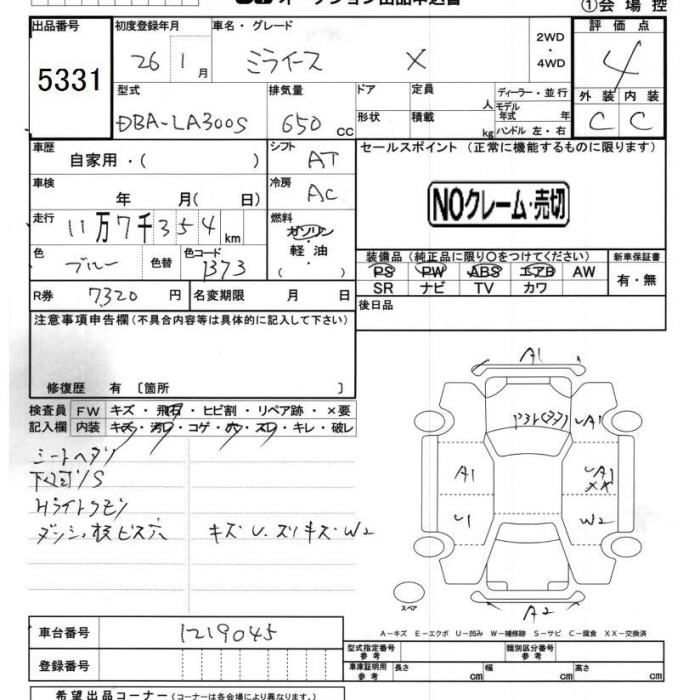 ①会場控
出品番号 5331
初度登録年月 26 1 月
車名・グレード ミライース X
2WD ・ 4WD
評価点 4
外装 内装
C C
型式 DBA-LA300S
排気量 650 CC
ドア 定員 人
形状 積載 kg
ディーラー・並行
モデル年式 年
ハンドル 左・右
車歴 自家用・( )
シフト AT
セールスポイント (正常に機能するものに限ります)
NOクレーム・売切
車検 年 月( 日)
冷房 AC
走行 11万7千354km
燃料 ガソリン・軽油・( )
色 ブルー 色替 色コード B73
装備品(純正品に限り○をつけてください)
PS PW ABS エアB AW
SR ナビ TV カワ
新車保証書 有・無
R券 7320 円
名変期限 月 日
後日品
注意事項申告欄(不具合内容等は具体的に記入して下さい)
修復歴 有 〔箇所 〕
検査員 FW キズ・飛石・ヒビ割・リペア跡・×要
記入欄 内装 キズ・汚レ・コゲ・穴・スレ・キレ・破レ
シートヘタリ
下回リS
Hライトクモリ
ダッシュ、杉ビス穴 キズ U. スリキズ・W2
A1
A1
A1
A1
XX
U1
W2
A2
スペア
A−キズ E−エクボ U−凹み W−補修跡 S−サビ C−腐食 XX−交換済
車台番号 1219045
登録番号
型式指定番号 参考
類別区分番号 参考
車庫証明用 参考 長さ cm 幅 cm 高さ cm
希望出品コーナー(コーナーは各会場により異なります。)